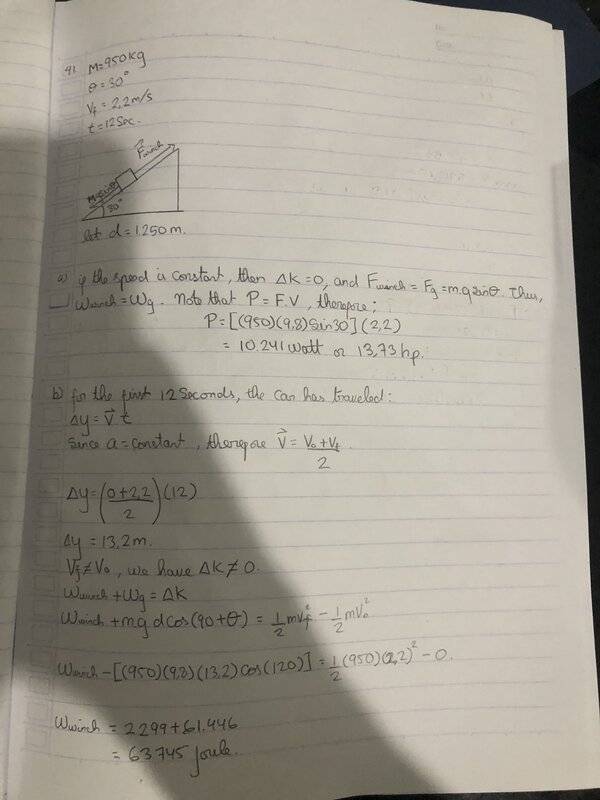 91. M=950kg
θ=30°
Vf = 2,2m/s
t=12Sec.
F⃗winch
Mgsinθ
30°
let d=1.250m.
a) if the speed is constant, then ΔK=0, and Fwinch = Fg = m.g sinθ. Thus,
Wwinch=Wg. Note that P=F.V, therefore;
P=[(950)(9,8)Sin30](2,2)
= 10.241 watt or 13,73 hp.
b) for the first 12 Seconds, the car has traveled:
Δy= V⃗ t
Since a=constant, therefore V⃗ = V₀+Vf/2
Δy=(0+2,2/2)(12)
Δy = 13,2m.
Vf≠V₀, we have ΔK≠0.
Wwinch+Wg=ΔK
Wwinch+mg dcos(90+θ) = 1/2 mVf² - 1/2 mV₀²
Wwinch-[(950)(9,8)(13,2)Cos(120)] = 1/2 (950)(2,2)² - 0.
Wwinch = 2299+61.446
= 63745 joule.